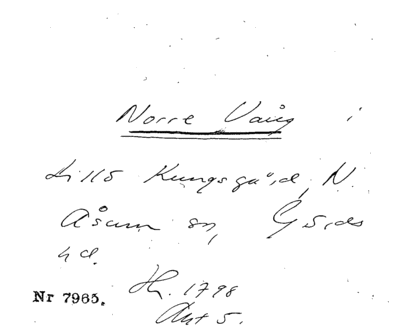 Norre Vång i
Lillö Kungsgård, N.
Åsum sn, Gärds
hd.
Nr 7965. Hh. 1798
Akt 5.